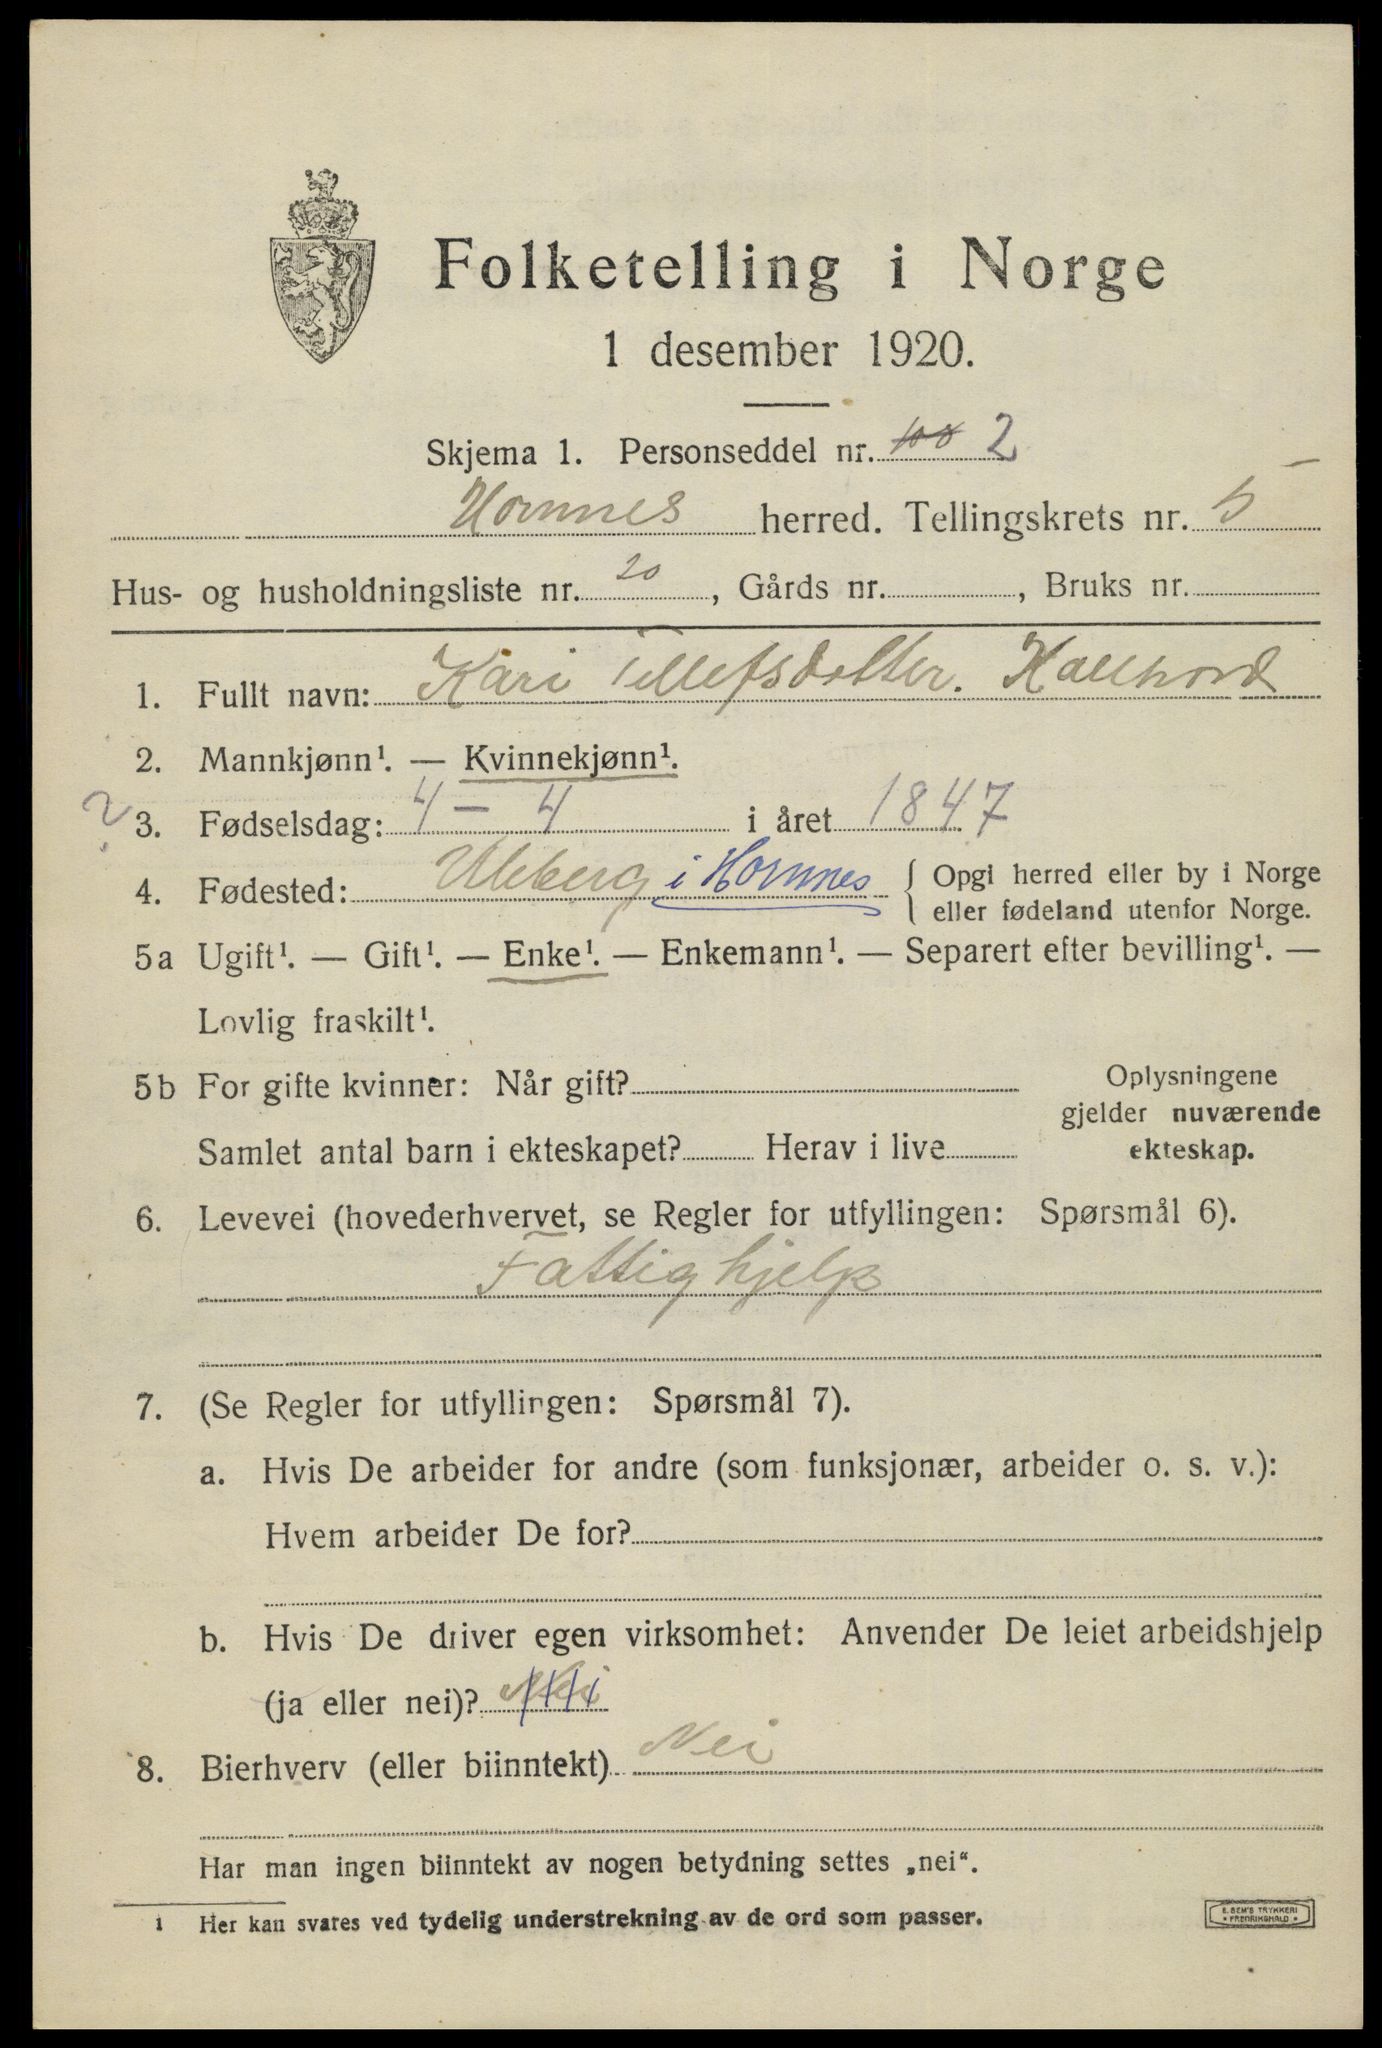 Folketelling i Norge
1 desember 1920.
Skjema 1. Personseddel nr. 2
Hornnes herred. Tellingskrets nr. 5
Hus- og husholdningsliste nr. 20, Gårds nr. , Bruks nr.
1. Fullt navn: Kari Tellefsdotter.
2. Mannkjønn¹. — Kvinnekjønn¹.
? 3. Fødselsdag: 4 - 4 i året 1847
4. Fødested: Uleberg i Hornnes { Opgi herred eller by i Norge
eller fødeland utenfor Norge.
5a Ugift¹. — Gift¹. — Enke¹. — Enkemann¹. — Separert efter bevilling¹. —
Lovlig fraskilt¹.
5b For gifte kvinner: Når gift? Oplysningene
gjelder nuværende
Samlet antal barn i ekteskapet? Herav i live ekteskap.
6. Levevei (hovederhvervet, se Regler for utfyllingen: Spørsmål 6).
Fattighjelp
7. (Se Regler for utfyllingen: Spørsmål 7).
a. Hvis De arbeider for andre (som funksjonær, arbeider o. s. v.):
Hvem arbeider De for?
b. Hvis De driver egen virksomhet: Anvender De leiet arbeidshjelp
(ja eller nei)? Nei
8. Bierhverv (eller biinntekt) Nei
Har man ingen biinntekt av nogen betydning settes „nei“.
1 Her kan svares ved tydelig understrekning av de ord som passer.
E. SEM'S TRYKKERI
FREDRIKSHALD